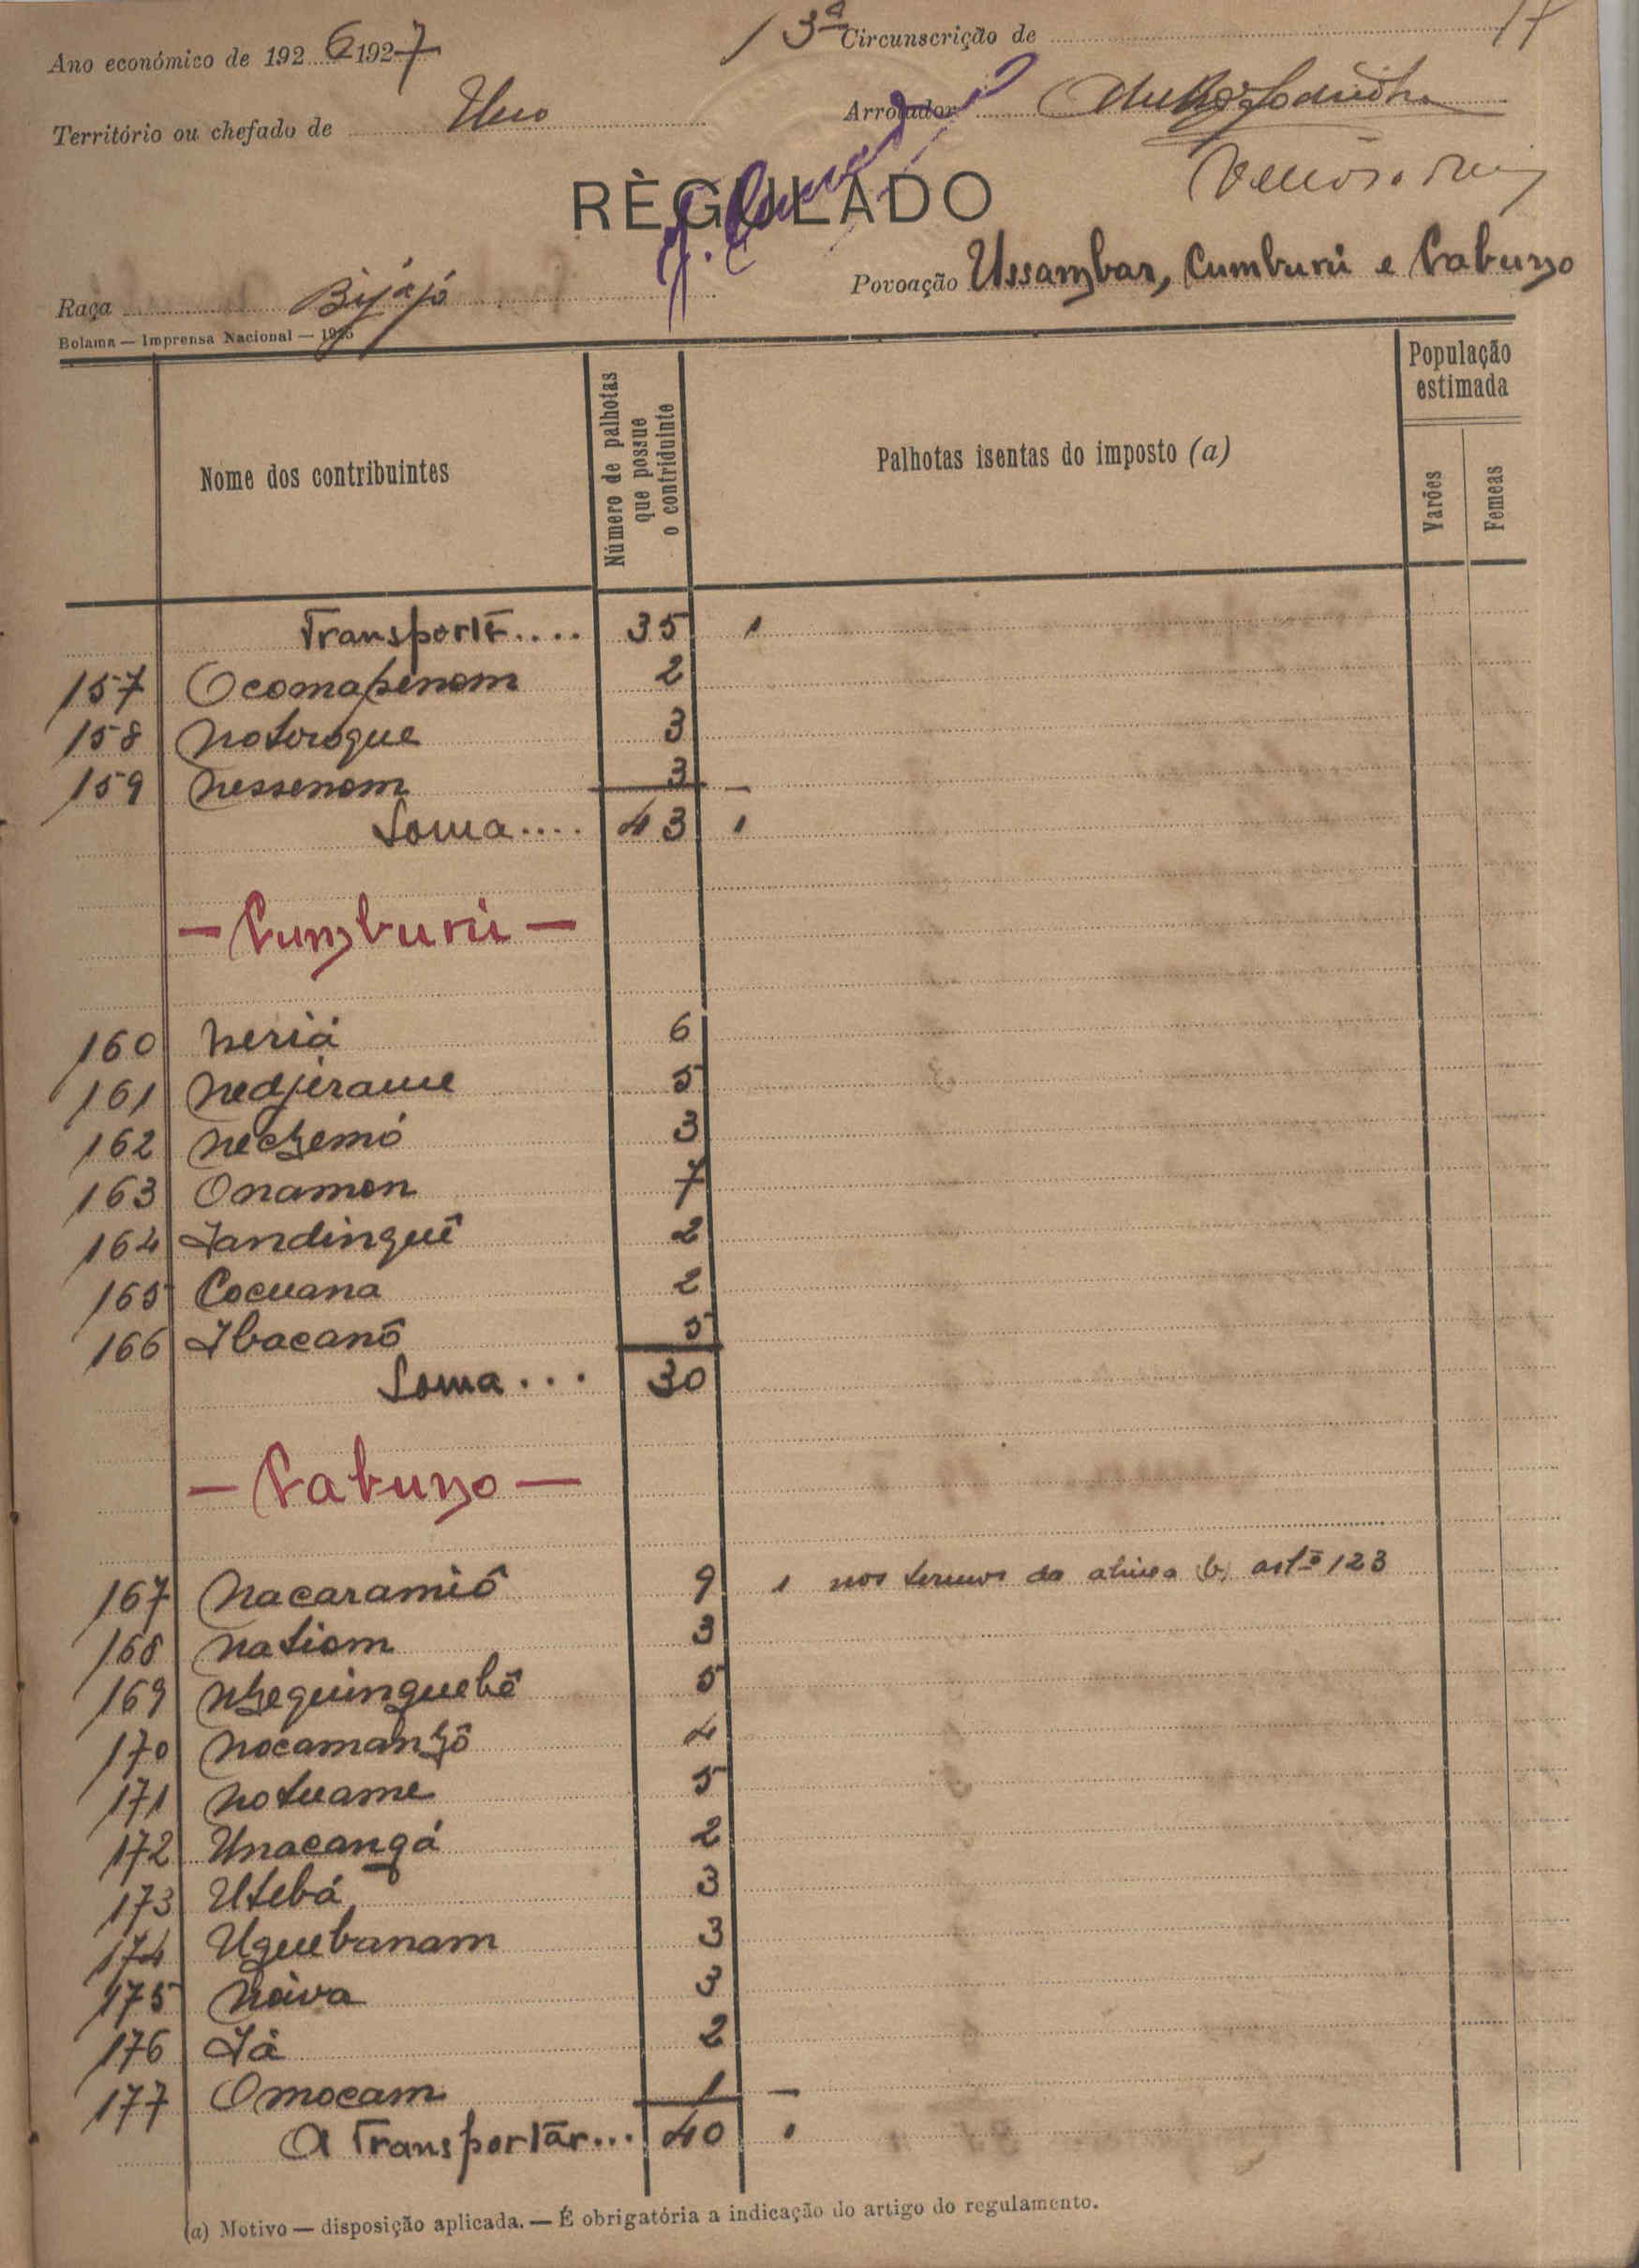 17
Ano económico de 1926 1927
13ª Circunscrição de
Território ou chefado de Uno
Arrolador
RÈGULADO
Raça Bijájó
Povoação Ussambar, Cumburú e Cabuno
Bolama — Imprensa Nacional — 1925
Nome dos contribuintes
Número de palhotas que possue o contriduinte
Palhotas isentas do imposto (a)
População estimada
Varões
Femeas
Transporte.... 35 1
157 Ocomapenom 2
158 Notoroque 3
159 Nessenom 3
Soma.... 43 1
— Cumburú —
160 Neriá 6
161 Nedjirame 5
162 Neczemó 3
163 Onamon 7
164 Iandinguê 2
165 Cocuana 2
166 Ibacanô 5
Soma... 30
— Cabuno —
167 Nacaramiô 9 1 nos termos da alinea (b) artº 123
168 Natiom 3
169 Nzequinguebê 5
170 Nocamanzô 4
171 Notuame 5
172 Unacangá 2
173 Utebá 3
174 Uguebanam 3
175 Naiva 3
176 Iá 2
177 Omocam 1
A Transportar... 40 1
(a) Motivo — disposição aplicada. — É obrigatória a indicação do artigo do regulamento.